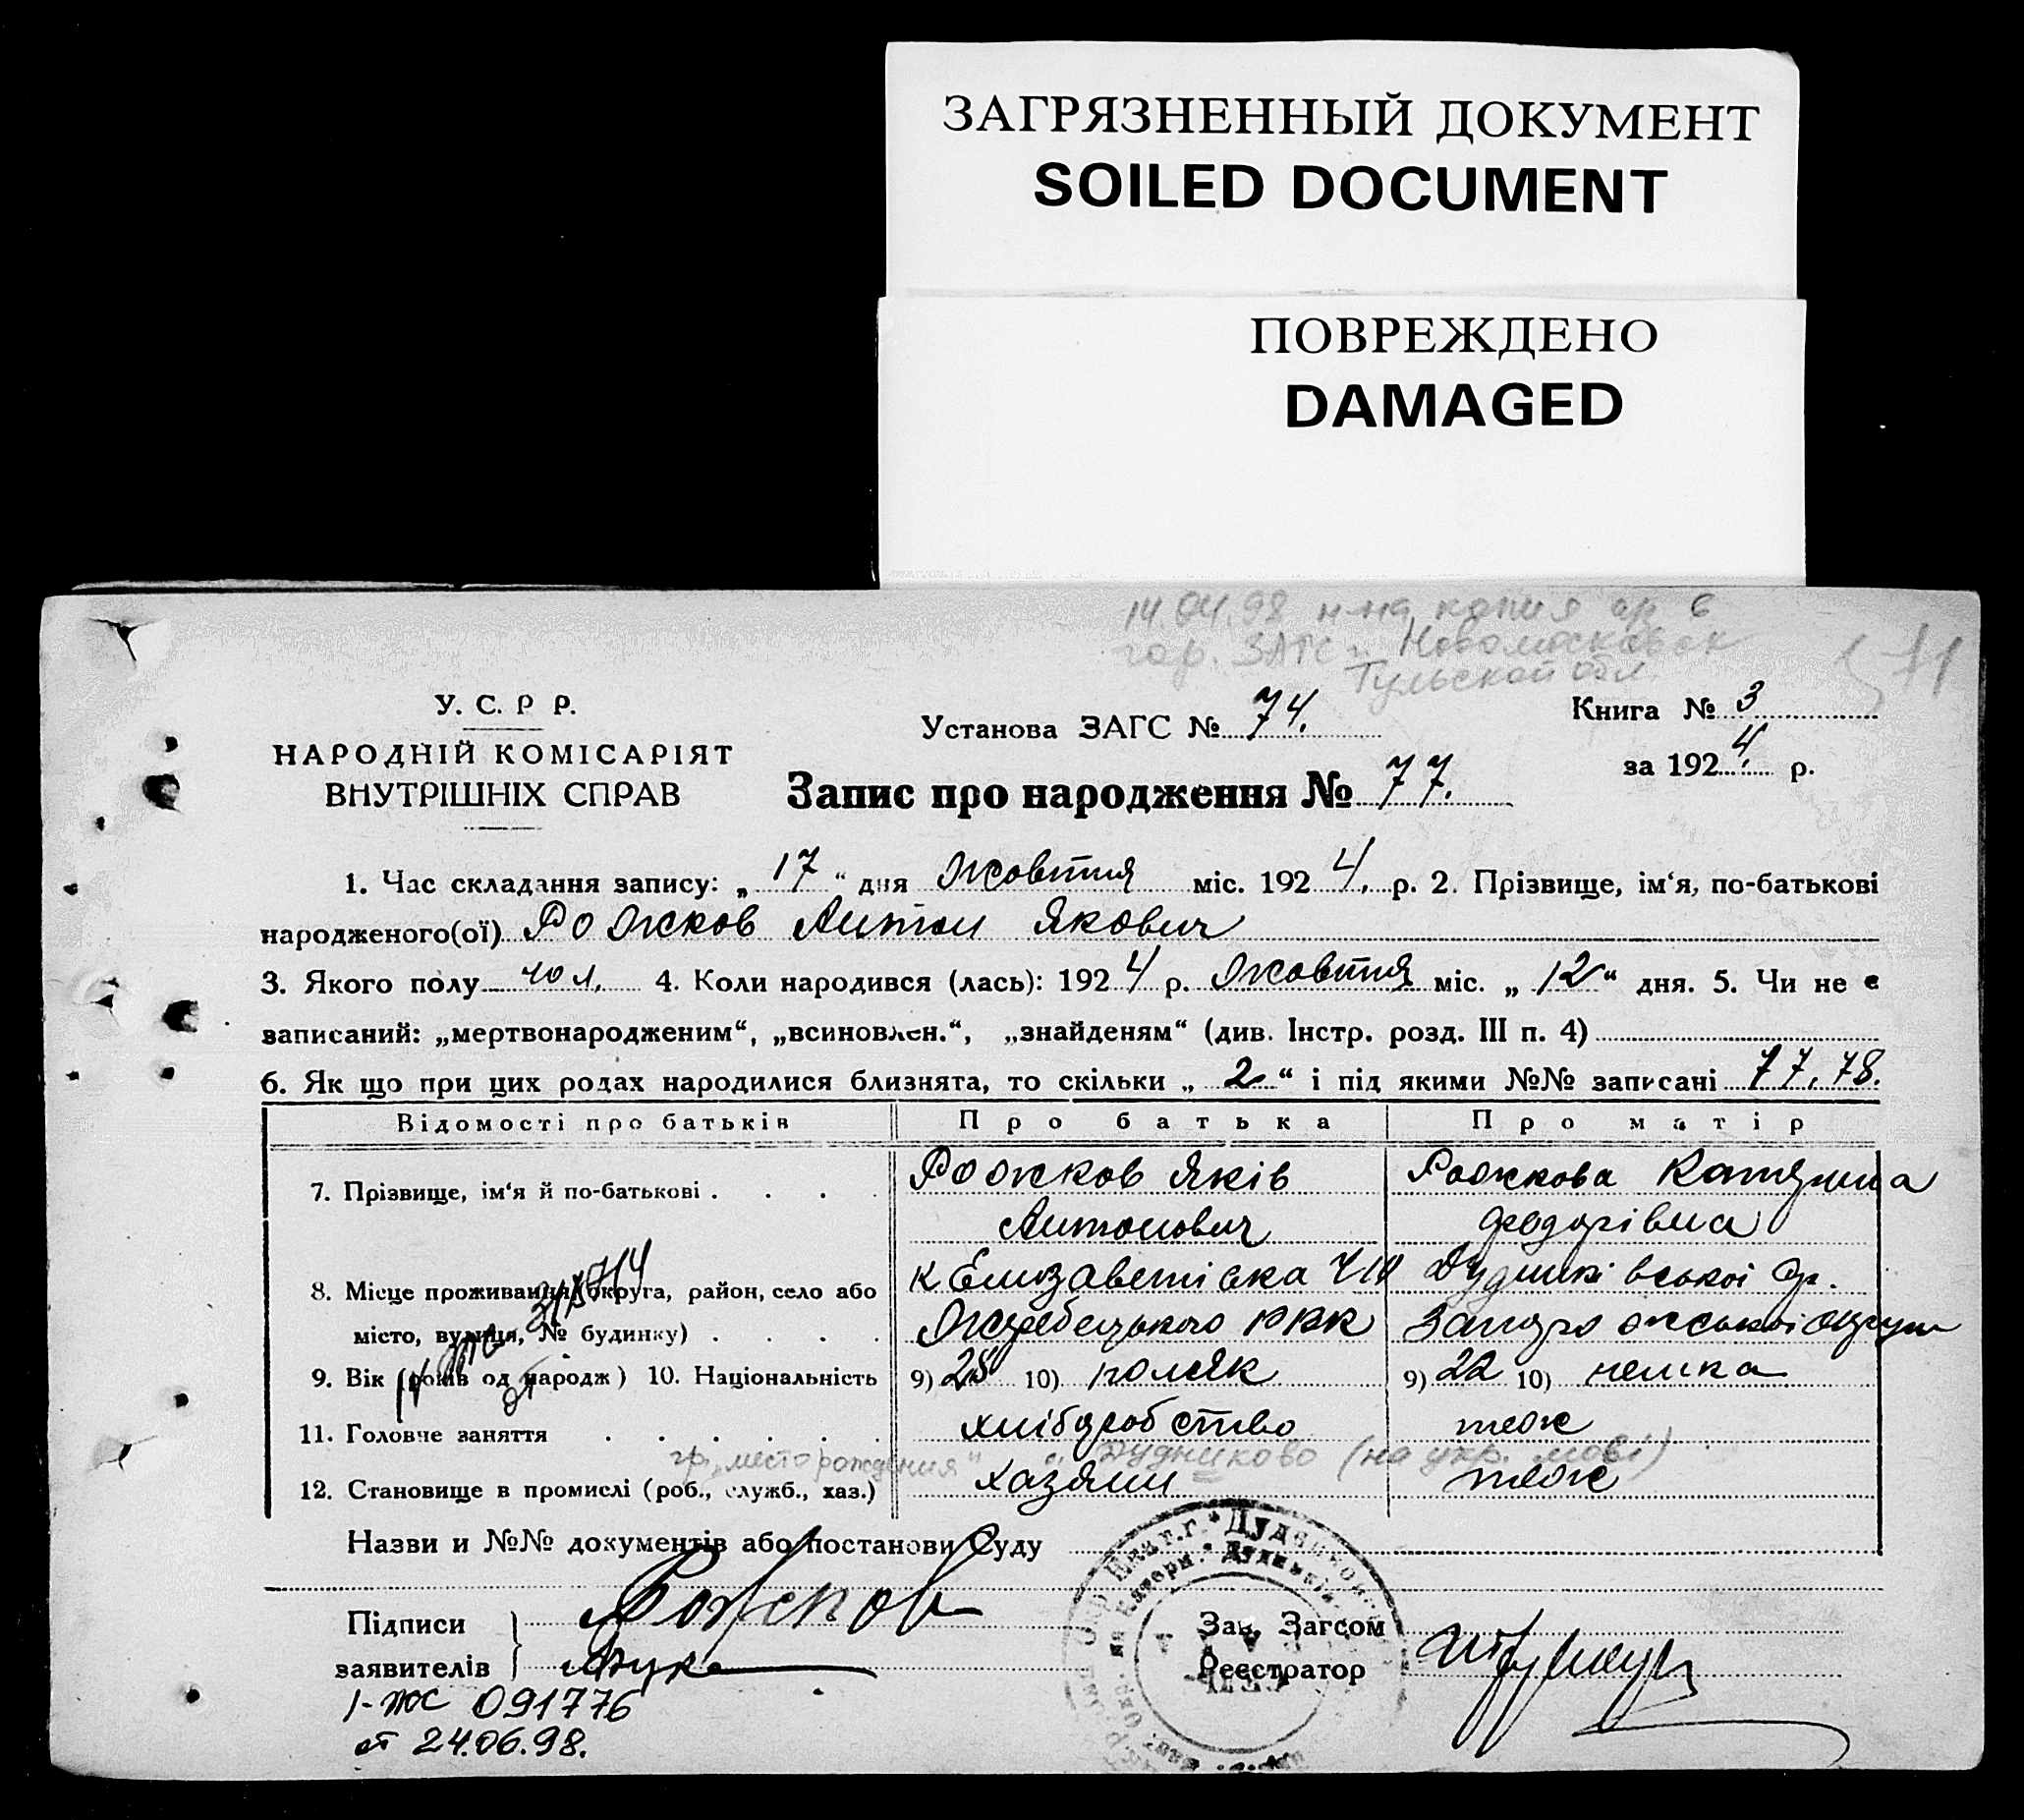 ЗАГРЯЗНЕННЫЙ ДОКУМЕНТ
SOILED DOCUMENT
ПОВРЕЖДЕНО
DAMAGED
14.04.98 н-на копия
гор. ЗАГС г. Новомосковск
Тульской обл.
У. С. Р Р.
НАРОДНІЙ КОМІСАРІЯТ
ВНУТРІШНІХ СПРАВ
Установа ЗАГС № 74.
Книга № 3
за 1924 р.
Запис про народження № 77.
1. Час складання запису: „ 17 “ дня Жовтня міс. 1924. р. 2. Прізвище, ім‘я, по-батькові
народженого(ої) Рожков Антон Якович
3. Якого полу чол. 4. Коли народився (лась): 1924 р. Жовтня міс. „ 12 “ дня. 5. Чи не є
записаний: „мертвонародженим“, „всиновлен.“, „знайденям“ (див. Інстр. розд. III п. 4)
6. Як що при цих родах народилися близнята, то скільки „ 2 “ і під якими №№ записані 77, 78.
Відомості про батьків Про батька Про матір
7. Прізвище, ім‘я й по-батькові . . . . Рожков Яків Рожкова Катерина
Антонович Федорівна
8. Місце проживання (округа, район, село або к Елизаветівка Дудниківської
місто, вулиця, № будинку) . . . . Жеребецького РВК Запорожської округи
9. Вік (років од народж) 10. Національність 9) 28 10) поляк 9) 22 10) немка
11. Головне заняття . . . . . . хліборобство тож
гр. „место рождения“ „Дудниково (на укр. мові)
12. Становище в промислі (роб., служб., хаз.) хазяин тож
Назви и №№ документів або постанови Суду
Підписи Рожков Зав. Загсом
заявителів Реєстратор
I-ЖС 091776
от 24.06.98.